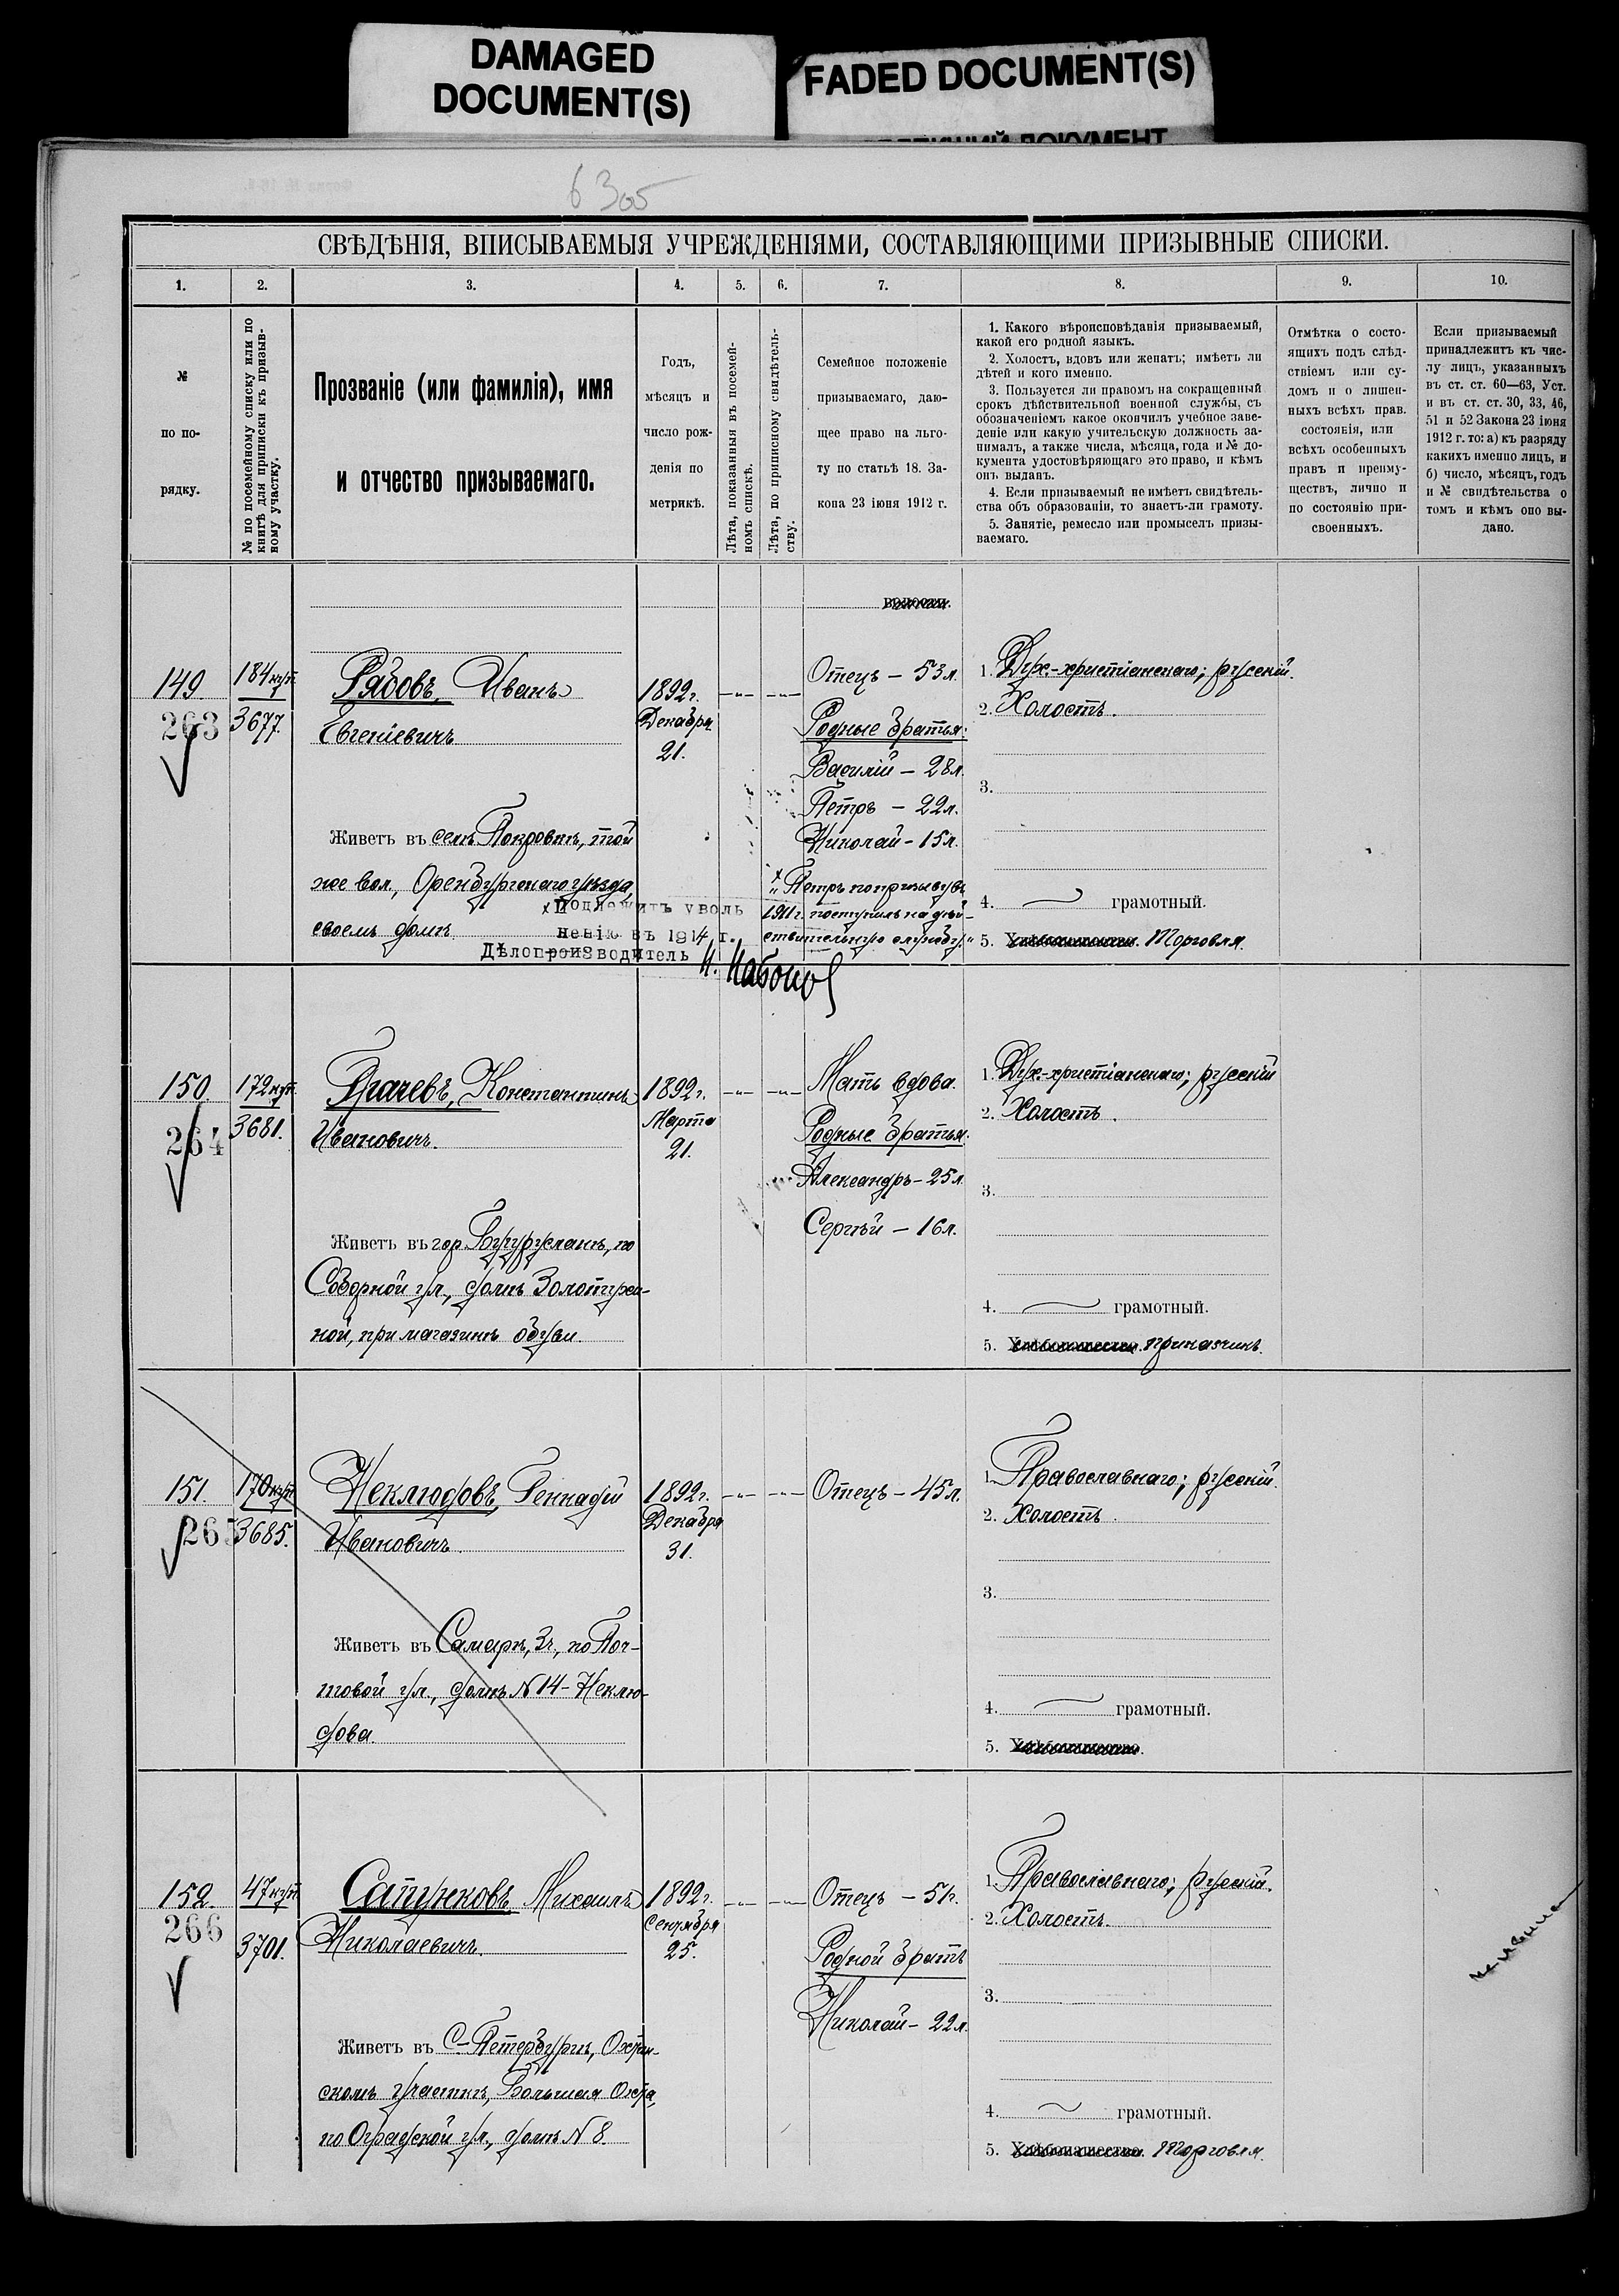 DAMAGED
DOCUMENT(S)
FADED DOCUMENT(S)
6305
СВѢДѢНІЯ, ВПИСЫВАЕМЫЯ УЧРЕЖДЕНІЯМИ, СОСТАВЛЯЮЩИМИ ПРИЗЫВНЫЕ СПИСКИ.
1.
2.
3.
4.
5.
6.
7.
8.
9.
10.
№
по по-
рядку.
№ по посемейному списку или по
книгѣ для приписки къ призыв-
ному участку.
Прозваніе (или фамилія), имя
и отчество призываемаго.
Годъ,
мѣсяцъ и
число рож-
денія по
метрикѣ.
Лѣта, показанныя въ посемей-
номъ спискѣ.
Лѣта, по приписному свидѣтель-
ству.
Семейное положеніе
призываемаго, даю-
щее право на льго-
ту по статьѣ 18. За-
кона 23 іюня 1912 г.
1. Какого вѣроисповѣданія призываемый,
какой его родной языкъ.
2. Холостъ, вдовъ или женатъ; имѣетъ ли
дѣтей и кого именно.
3. Пользуется ли правомъ на сокращенный
срокъ дѣйствительной военной службы, съ
обозначеніемъ какое окончилъ учебное заве-
деніе или какую учительскую должность за-
нималъ, а также числа, мѣсяца, года и № до-
кумента удостовѣряющаго это право, и кѣмъ
онъ выданъ.
4. Если призываемый не имѣетъ свидѣтель-
ства объ образованіи, то знаетъ-ли грамоту.
5. Занятіе, ремесло или промыселъ призы-
ваемаго.
Отмѣтка о состо-
ящихъ подъ слѣд-
ствіемъ или су-
домъ и о лишен-
ныхъ всѣхъ прав.
состоянія, или
всѣхъ особенныхъ
правъ и преиму-
ществъ, лично и
по состоянію при-
своенныхъ.
Если призываемый
принадлежитъ къ чис-
лу лицъ, указанныхъ
въ ст. ст. 60—63, Уст.
и въ ст. ст. 30, 33, 46,
51 и 52 Закона 23 іюня
1912 г. то: а) къ разряду
какихъ именно лицъ, и
б) число, мѣсяцъ, годъ
и № свидѣтельства о
томъ и кѣмъ оно вы-
дано.
волости.
149
263
184 куп.
3677.
Рябовъ, Иванъ
Евгеніевичъ
Живетъ въ селѣ Покровкѣ, той
же вол., Оренбургскаго уѣзда,
своемъ домѣ
1892 г.
Декабря
21.
Отецъ — 53 л.
Родные братья:
Василій — 28 л.
Петръ — 22 л.
Николай — 15 л.
х Петръ по призыву въ
1911 г. поступилъ на дѣй-
ствительную службу"
х Подлежитъ уволь
ненію въ 1914 г.
Дѣлопроизводитель
1. Дух.-христіанскаго; русскій.
2. Холостъ.
3.
4. грамотный.
5. Хлѣбопашество. Торговля.
150
264
172 куп.
3681.
Грачевъ, Константинъ
Ивановичъ.
Живетъ въ гор. Бугурусланѣ, по
Соборной ул., домъ Золотухи-
ной, при магазинѣ обуви.
1892 г.
Марта
21.
Мать вдова.
Родные братья:
Александръ — 25 л.
Сергѣй — 16 л.
1. Дух.-христіанскаго; русскій
2. Холостъ.
3.
4. грамотный.
5. Хлѣбопашество. приказчикъ.
151.
265
170 куп.
3685.
Неклюдовъ, Геннадій
Ивановичъ.
Живетъ въ Самарѣ, 3 ч., по Поч-
товой ул., домъ № 14 — Неклю-
дова.
1892 г.
Декабря
31.
Отецъ — 45 л.
1. Православнаго; русскій.
2. Холостъ.
3.
4. грамотный.
5. Хлѣбопашество.
152.
266
47 куп.
3701.
Сапунковъ Михаилъ
Николаевичъ.
Живетъ въ С-Петербургѣ, Охтен-
скомъ участкѣ, Большая Охта,
по Оградской ул., домъ № 8.
1892 г.
Сентября
25.
Отецъ — 51 г.
Родной братъ
Николай — 22 л.
1. Православнаго; русскій.
2. Холостъ.
3.
4. грамотный.
5. Хлѣбопашество. Торговля.